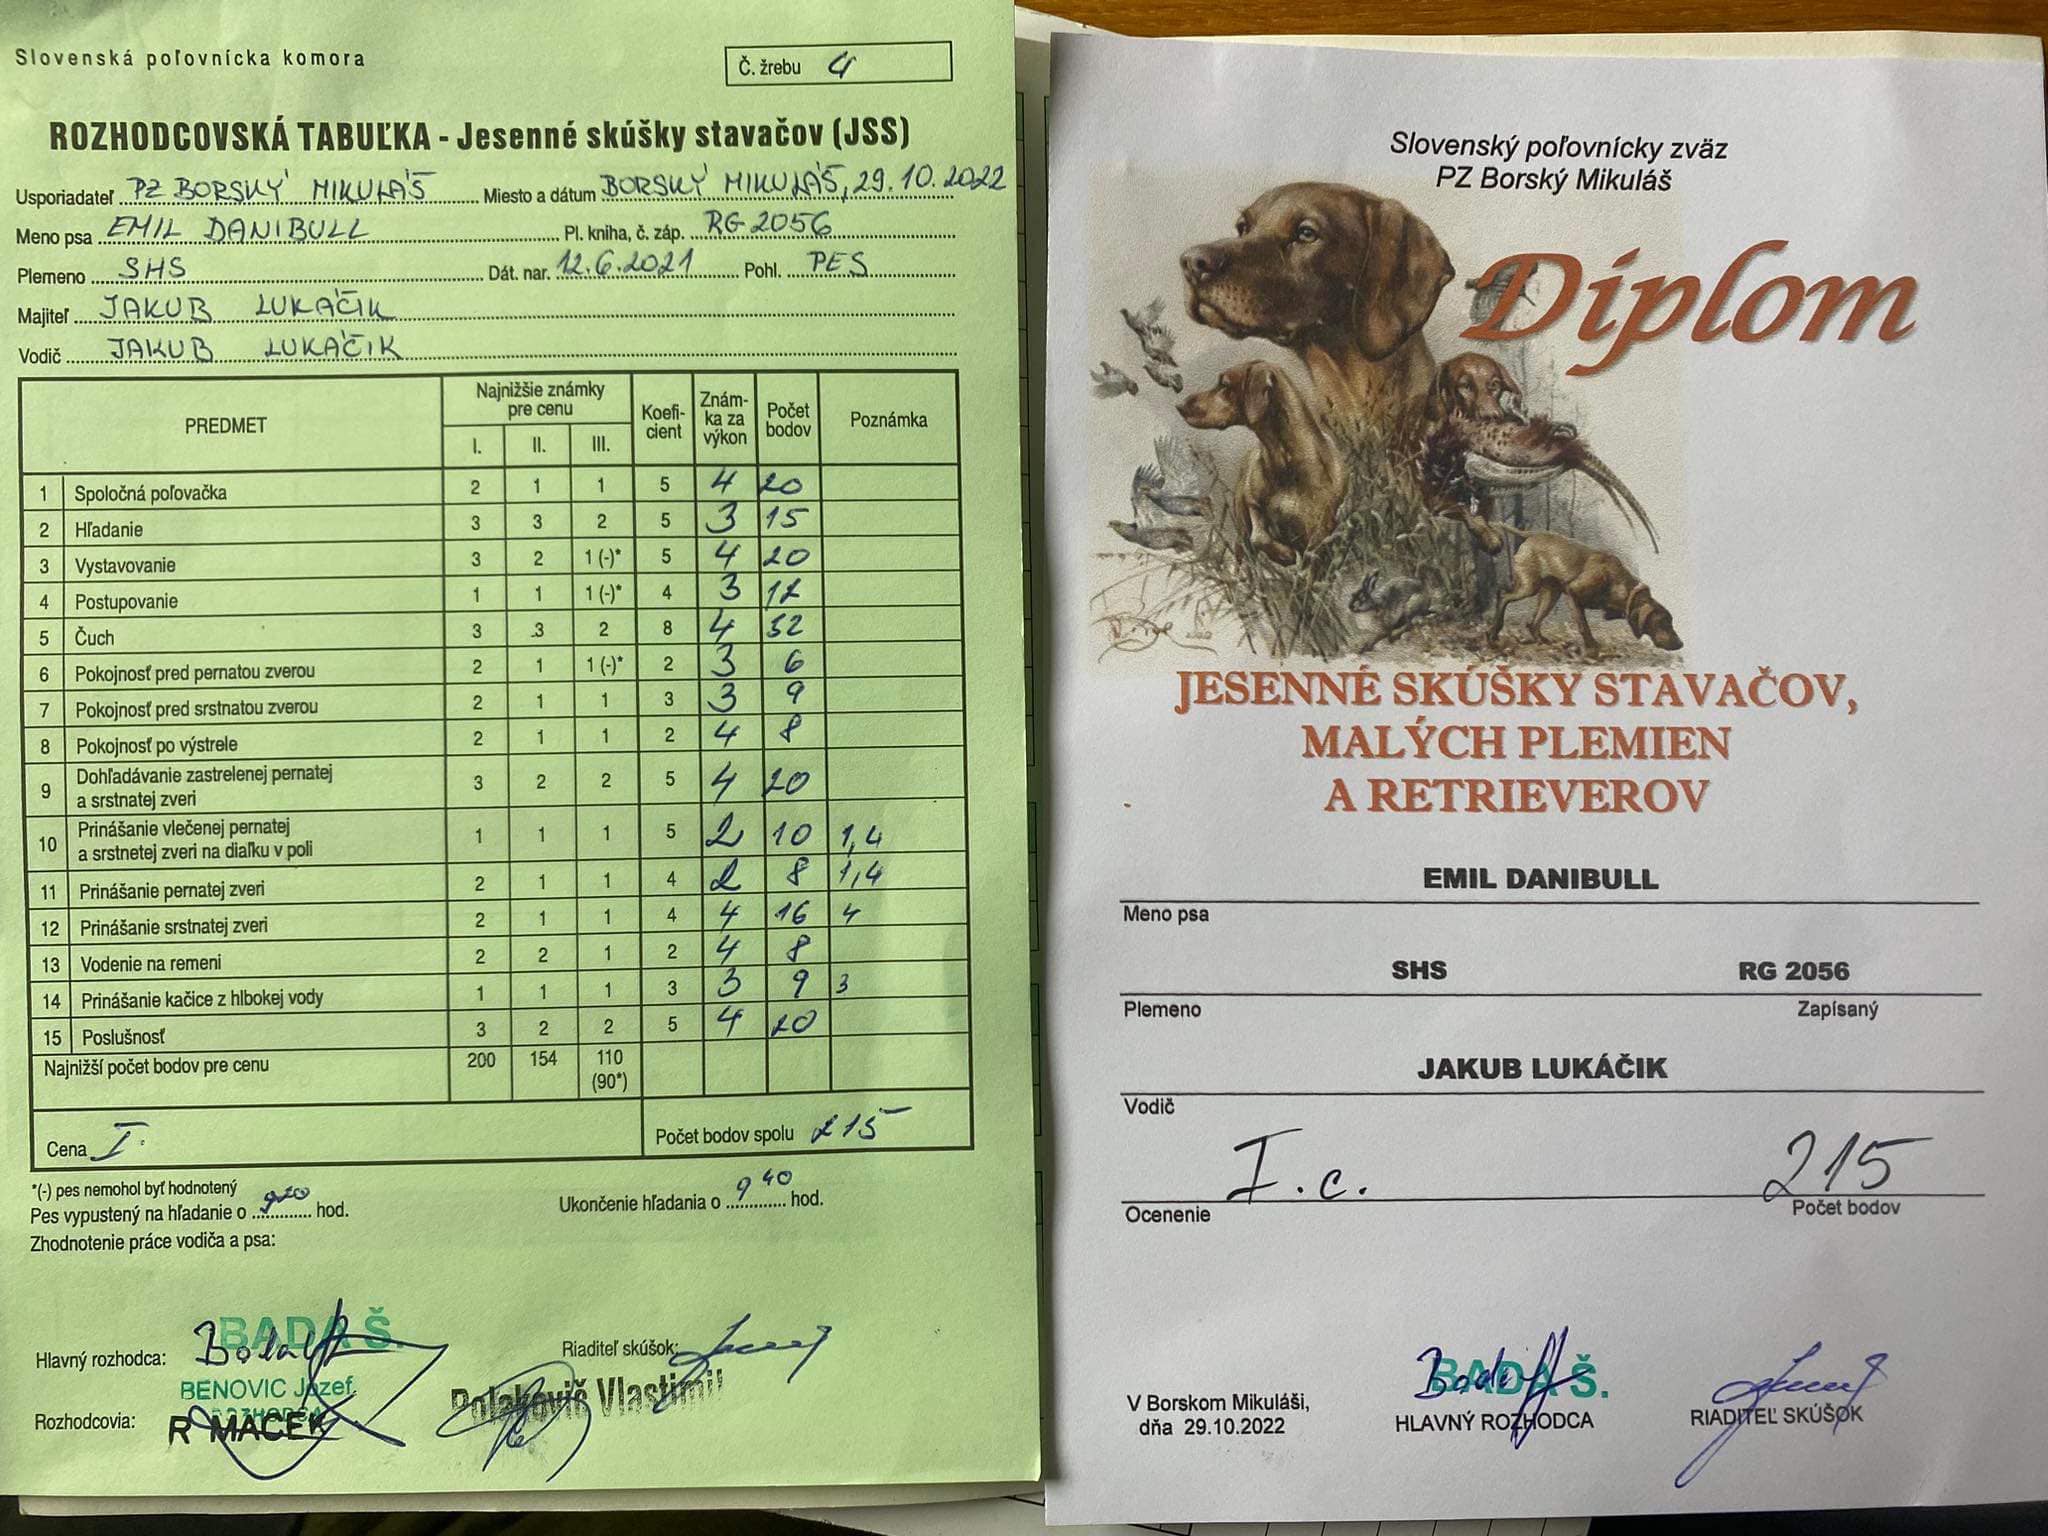 Slovenská poľovnícka komora
Č. žrebu 4
ROZHODCOVSKÁ TABUĽKA - Jesenné skúšky stavačov (JSS)
Usporiadateľ PZ BORSKÝ MIKULÁŠ Miesto a dátum BORSKÝ MIKULÁŠ, 29.10.2022
Meno psa EMIL DANIBULL Pl. kniha, č. záp. RG 2056
Plemeno SHS Dát. nar. 12.6.2021 Pohl. PES
Majiteľ JAKUB LUKÁČIK
Vodič JAKUB LUKÁČIK
PREDMET Najnižšie známky pre cenu I. II. III. Koefi-cient Znám-ka za výkon Počet bodov Poznámka
1 Spoločná poľovačka 2 1 1 5 4 20
2 Hľadanie 3 3 2 5 3 15
3 Vystavovanie 3 2 1 (-)* 5 4 20
4 Postupovanie 1 1 1 (-)* 4 3 12
5 Čuch 3 3 2 8 4 32
6 Pokojnosť pred pernatou zverou 2 1 1 (-)* 2 3 6
7 Pokojnosť pred srstnatou zverou 2 1 1 3 3 9
8 Pokojnosť po výstrele 2 1 1 2 4 8
9 Dohľadávanie zastrelenej pernatej
a srstnatej zveri 3 2 2 5 4 20
10 Prinášanie vlečenej pernatej
a srstnetej zveri na diaľku v poli 1 1 1 5 2 10 1,4
11 Prinášanie pernatej zveri 2 1 1 4 2 8 1,4
12 Prinášanie srstnatej zveri 2 1 1 4 4 16 4
13 Vodenie na remeni 2 2 1 2 4 8
14 Prinášanie kačice z hlbokej vody 1 1 1 3 3 9 3
15 Poslušnosť 3 2 2 5 4 20
Najnižší počet bodov pre cenu 200 154 110
(90*)
Cena I. Počet bodov spolu 215
*(-) pes nemohol byť hodnotený
Pes vypustený na hľadanie o 9 20 hod. Ukončenie hľadania o 9 40 hod.
Zhodnotenie práce vodiča a psa:
BADA Š.
Hlavný rozhodca: Riaditeľ skúšok:
BENOVIC Jozef
ROZHODCA
Rozhodcovia: R MACEK Polakovič Vlastimil
Slovenský poľovnícky zväz
PZ Borský Mikuláš
Diplom
JESENNÉ SKÚŠKY STAVAČOV,
MALÝCH PLEMIEN
A RETRIEVEROV
EMIL DANIBULL
Meno psa
SHS RG 2056
Plemeno Zapísaný
JAKUB LUKÁČIK
Vodič
I. c. 215
Ocenenie Počet bodov
BADA Š.
V Borskom Mikuláši,
dňa 29.10.2022
HLAVNÝ ROZHODCA RIADITEĽ SKÚŠOK